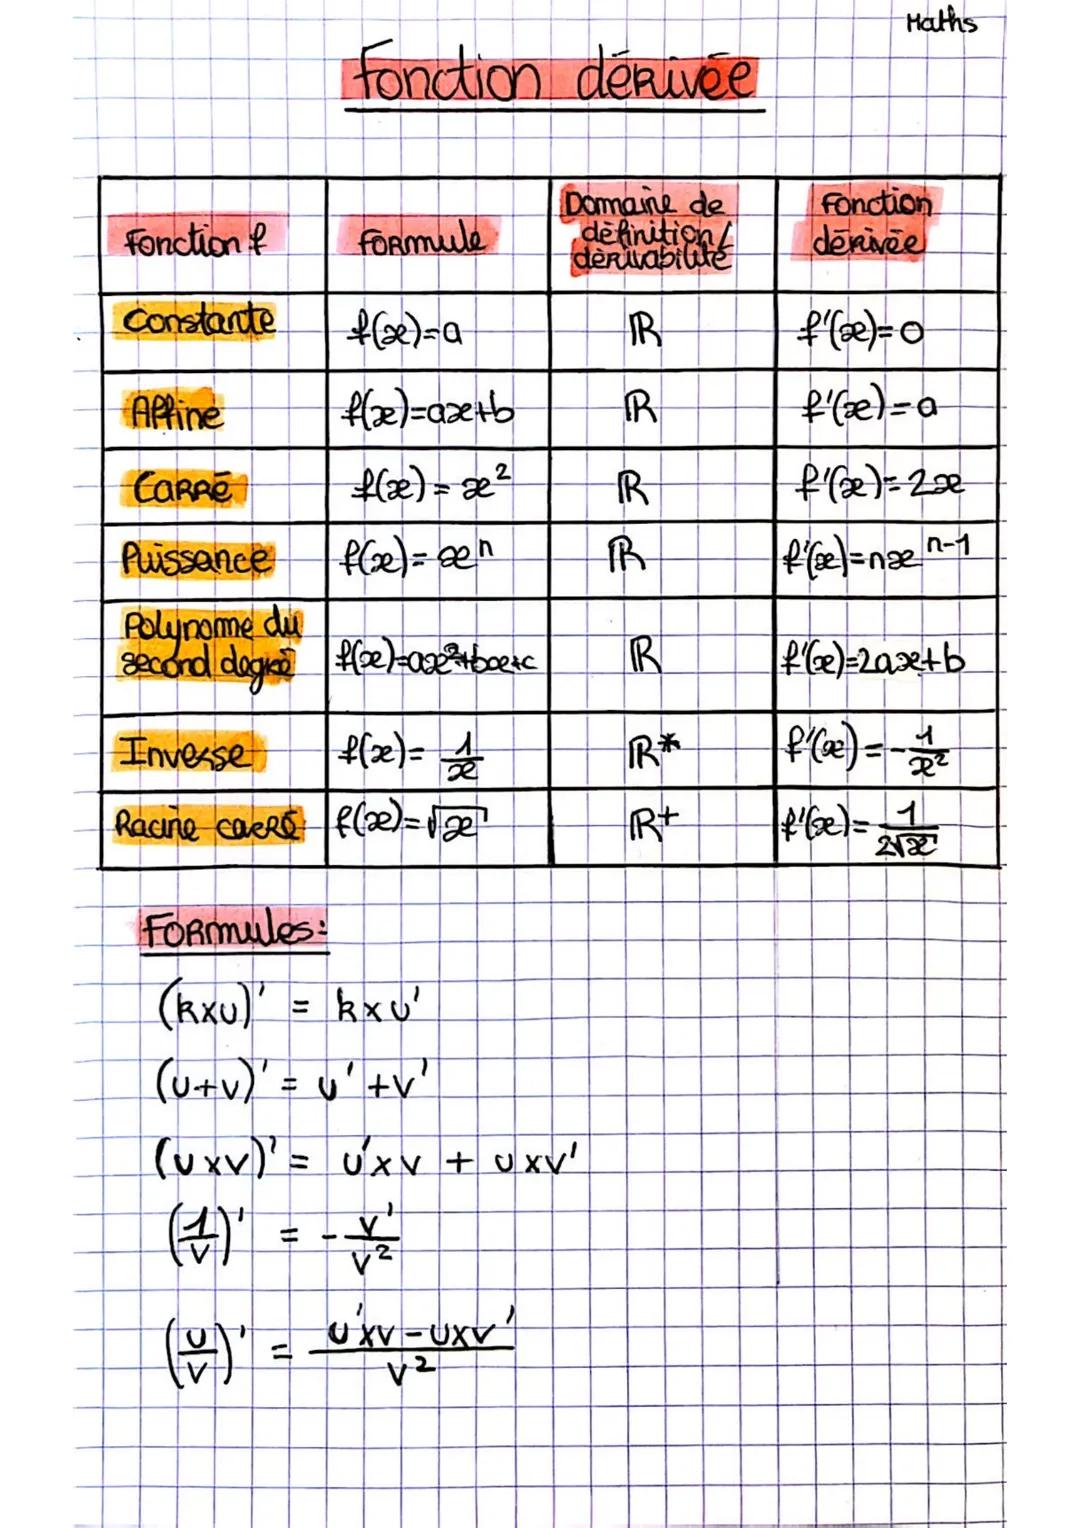 Maths
Fonction dérivée
Fonction f | Formule | Domaine de définition/ dérivabilité | Fonction dérivée
Constante | f(x)=a | ℝ | f'(x)=0
Affine | f(x)=ax+b | ℝ | f'(x)=a
Carré | f(x)=x² | ℝ | f'(x)=2x
Puissance | f(x)=xⁿ | ℝ | f'(x)=nxⁿ⁻¹
Polynome du second degré | f(x)=ax²+bx+c | ℝ | f'(x)=2ax+b
Inverse | f(x)=1/x | ℝ* | f'(x)=-1/x²
Racine carré | f(x)=√x | ℝ+ | f'(x)=1/2√x
Formules:
(k×u)' = k×u'
(u+v)' = u'+v'
(u×v)' = u'×v + u×v'
(1/v)' = -v'/v²
(u/v)' = u'×v-u×v'/v²